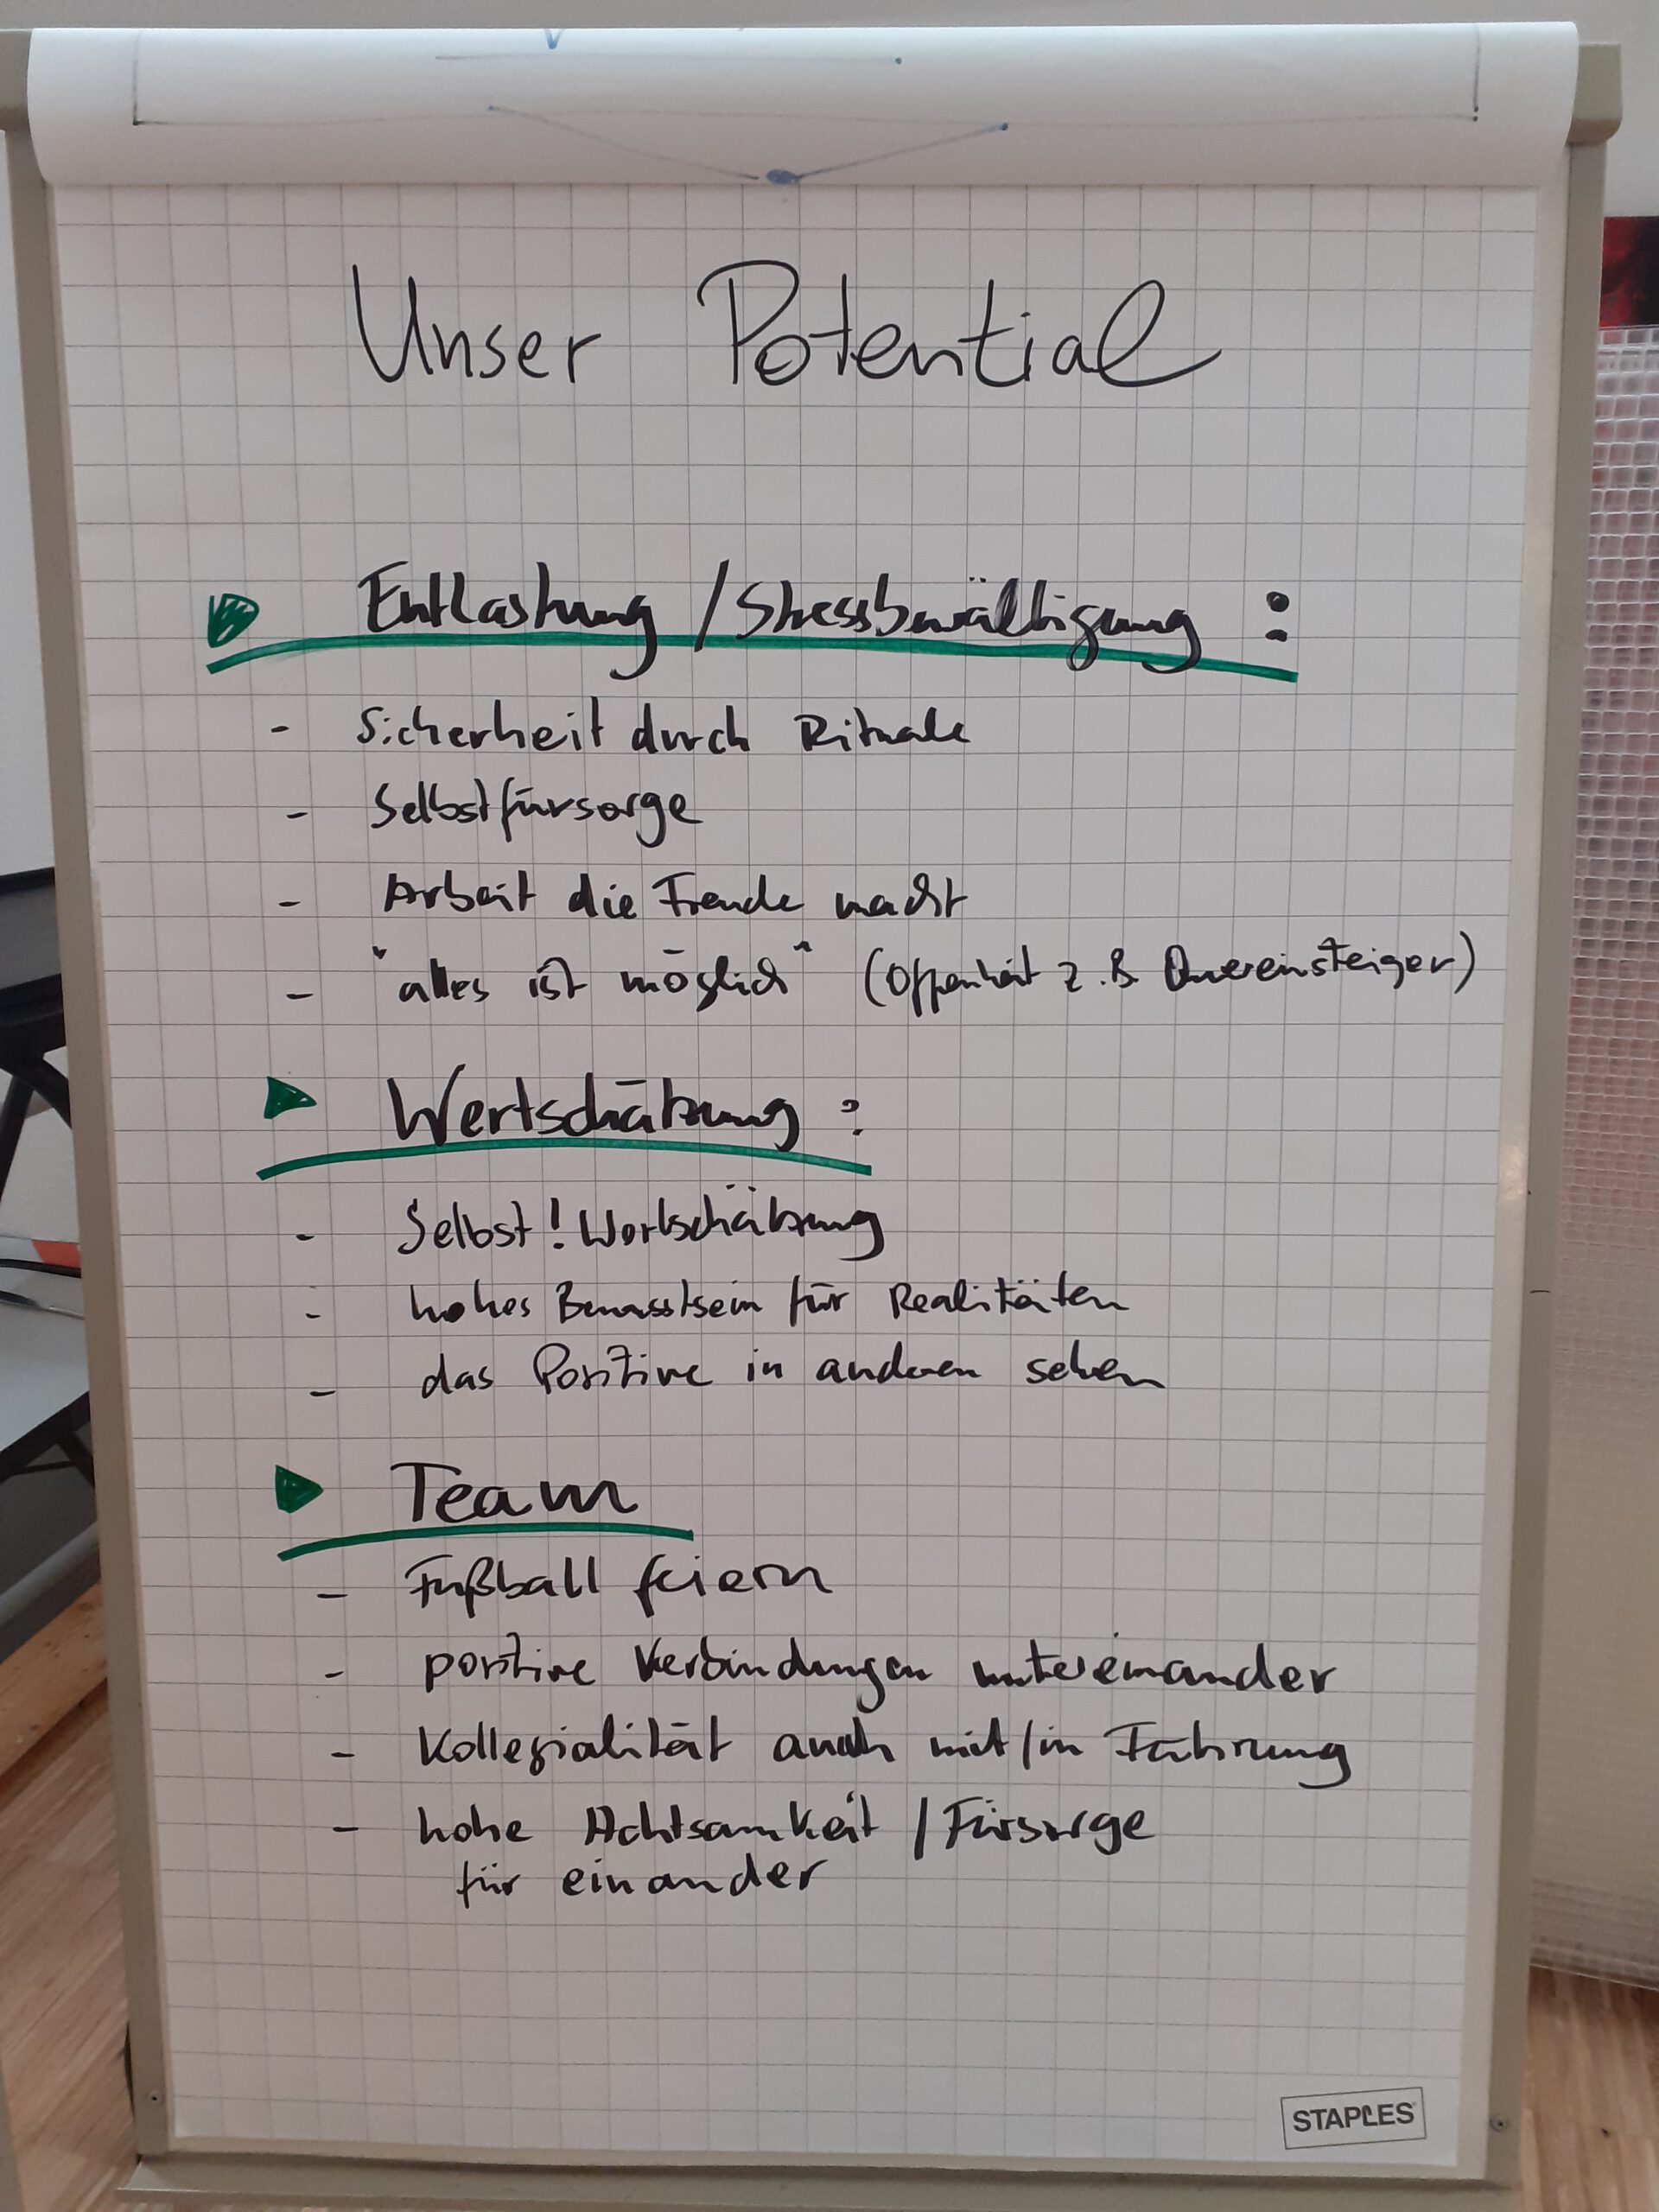 Unser Potential
Entlastung / Stressbewältigung :
- Sicherheit durch Rituale
- Selbstfürsorge
- Arbeit die Freude macht
- "alles ist möglich" (Offenheit z.B Quereinsteiger)
Wertschätzung :
- Selbst! Wertschätzung
- hohes Bewusstsein für Realitäten
- das Positive in anderen sehen
Team
- Fußball feiern
- positive Verbindungen untereinander
- Kollegialität auch mit/in Führung
- hohe Achtsamkeit / Fürsorge
für einander
STAPLES